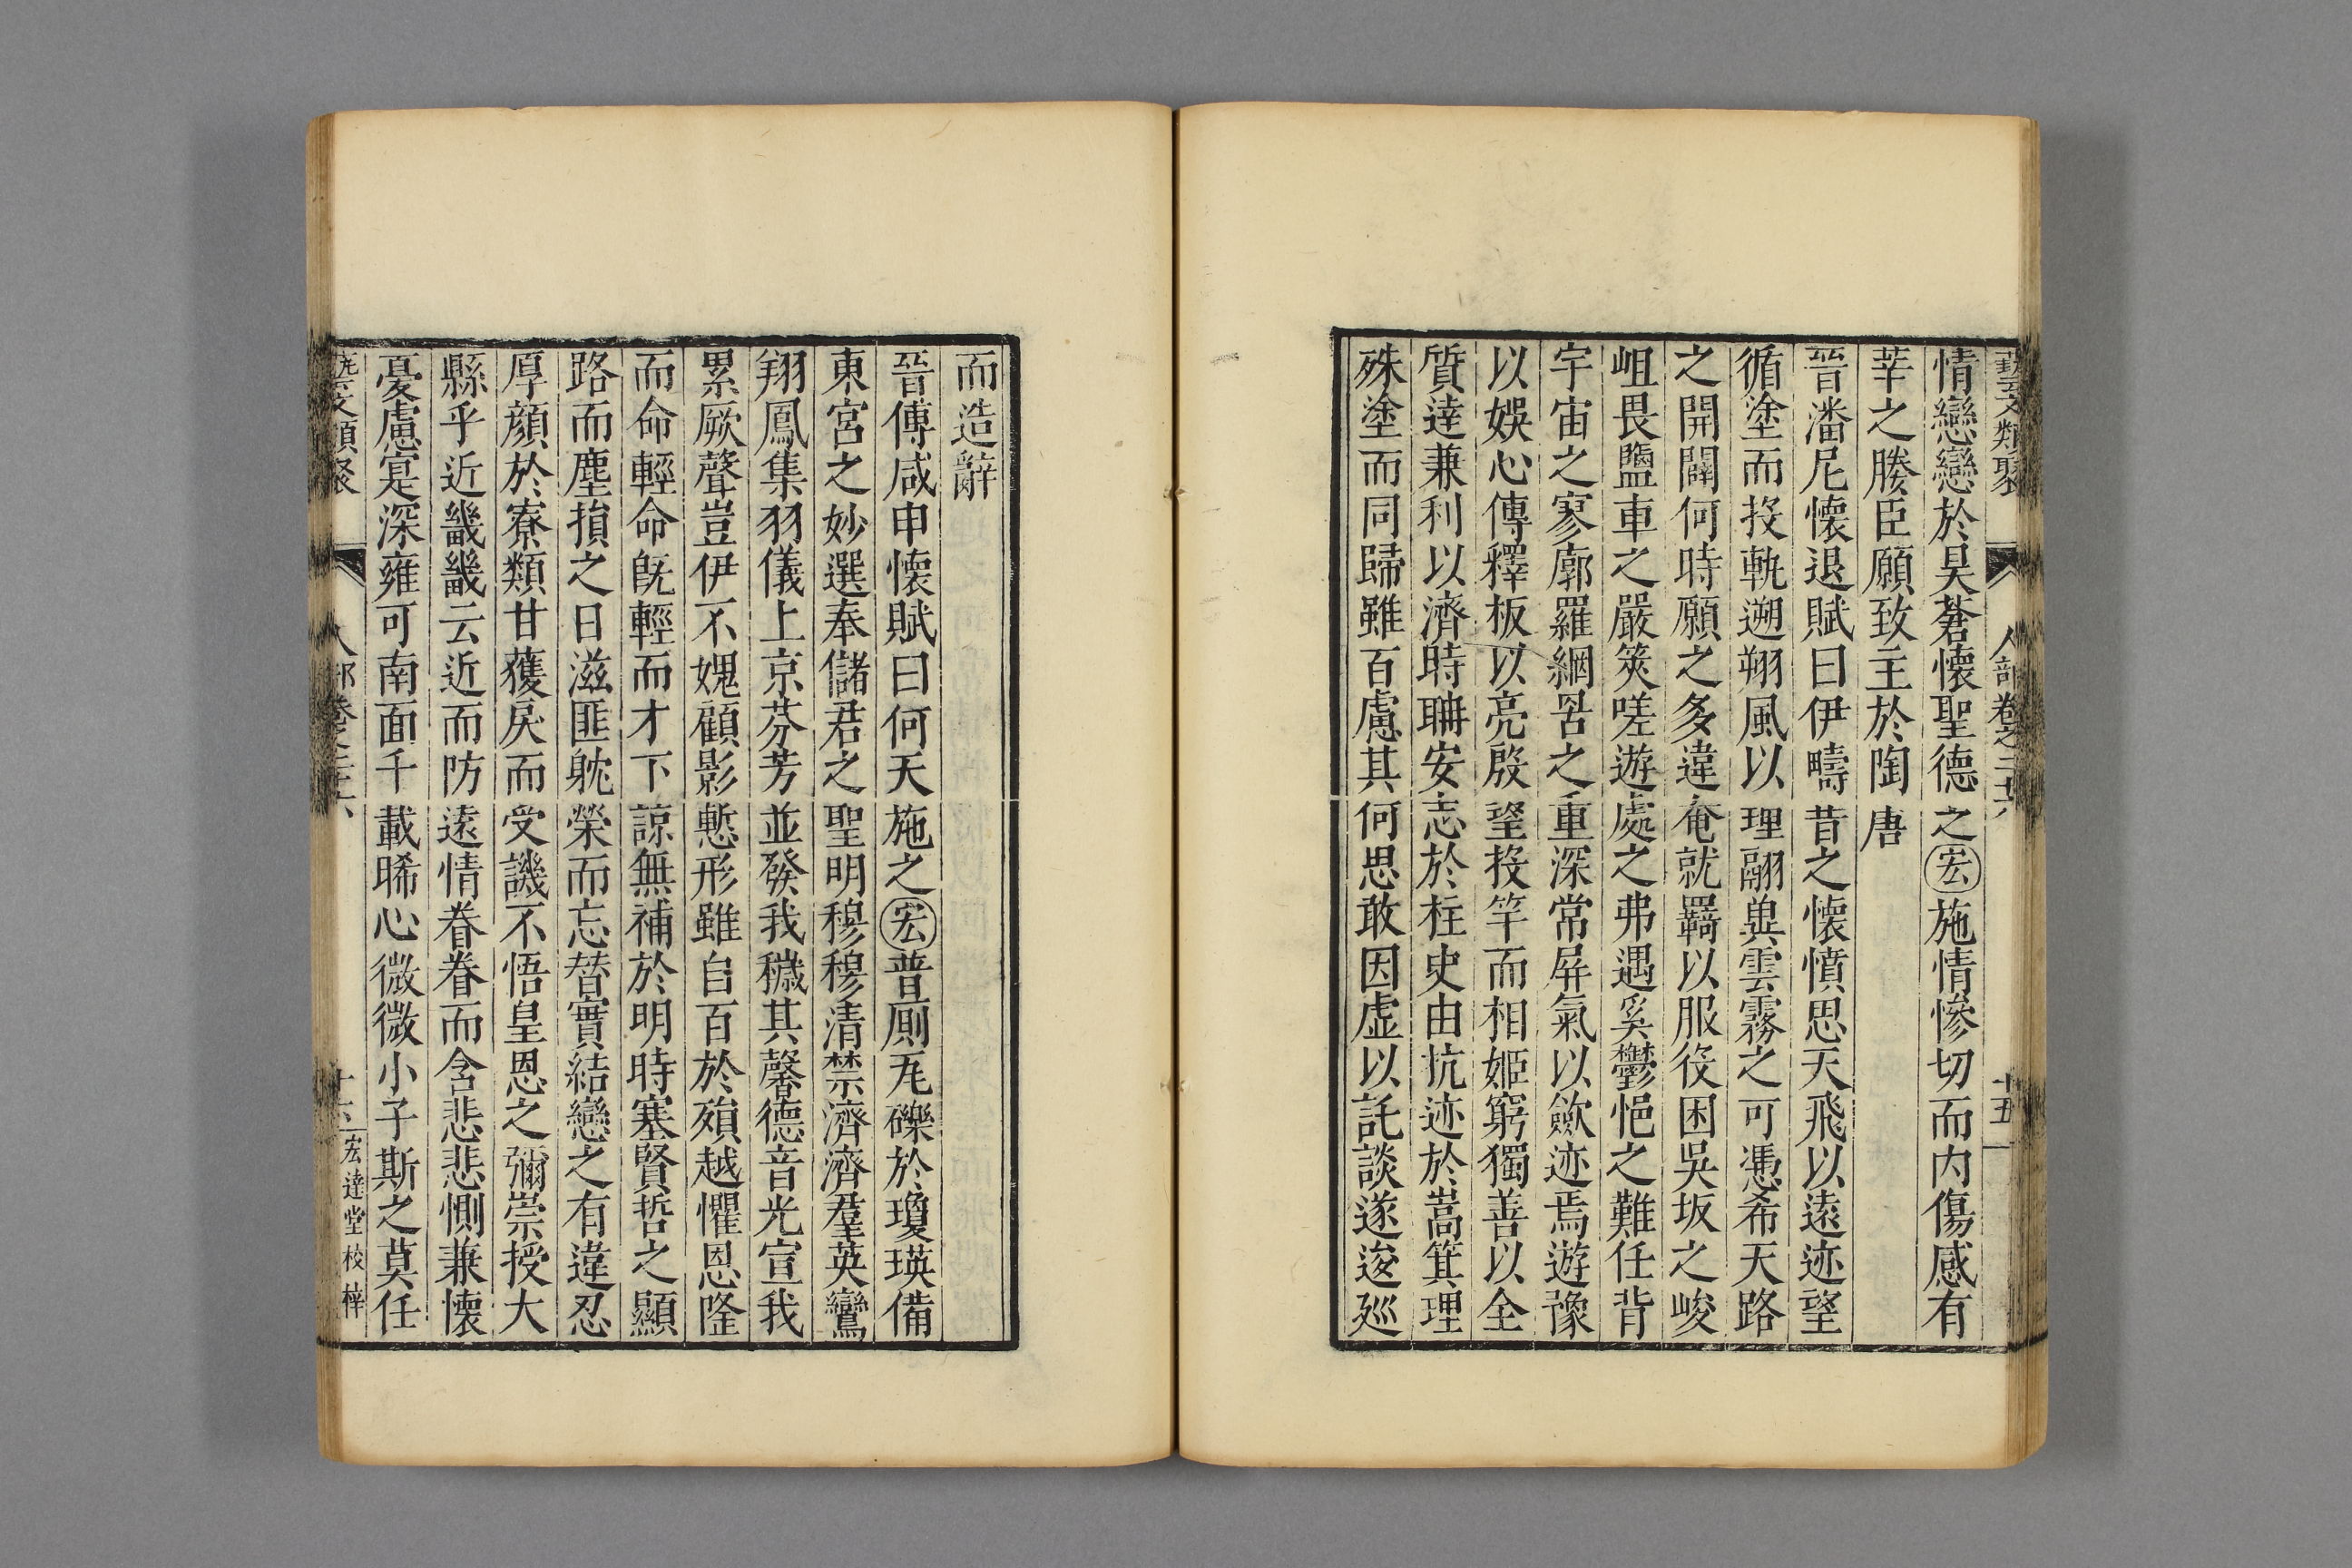 藝文類聚 人部卷之二十六 十五
情戀戀於昊蒼懷聖德之宏施情慘切而内傷感有
莘之媵臣願致主於陶唐
晉潘尼懷退賦曰伊疇昔之懷憤思天飛以遠迹望
循塗而投軌遡翔風以理翮㢲雲霧之可憑希天路
之開闢何時願之多違奄就羇以服役困吳坂之峻
岨畏鹽車之嚴筴嗟遊處之弗遇奚鬱悒之難任背
宇宙之寥廓羅網罟之重深常屏氣以斂迹焉遊豫
以娛心傅釋板以亮殷望投竿而相姬窮獨善以全
質逹兼利以濟時聃安志於柱史由抗迹於嵩箕理
殊塗而同歸雖百慮其何思敢因虛以託談遂逡廵
而造辭
晉傅咸申懷賦曰何天施之宏普厠瓦礫於瓊瑛備
東宮之妙選奉儲君之聖明穆穆清禁濟濟羣英鸞
翔鳳集羽儀上京芬芳並發我穢其馨德音光宣我
累厥聲豈伊不媿顧影慙形雖自百於殞越懼恩隆
而命輕命旣輕而才下諒無補於明時塞賢哲之顯
路而塵損之日滋匪躭榮而忘替實結戀之有違忍
厚顔於寮類甘獲戾而受譏不悟皇恩之彌崇授大
縣乎近畿畿云近而防遠情眷眷而含悲悲惻兼懷
憂慮寔深雍可南面千載晞心微微小子斯之莫任
藝文類聚 人部卷之二十六 十六 宏達堂校梓